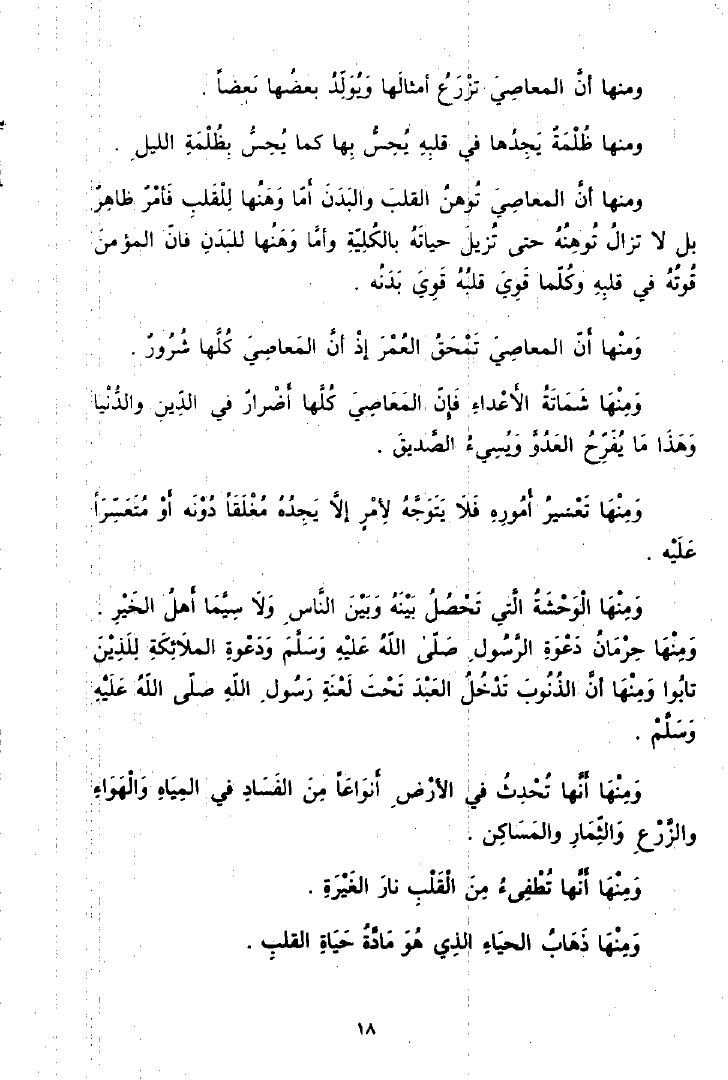 ومنها أنَّ المعاصِيَ تزْرَعُ أمثالَها وَيُوَلِّدُ بعضُها بَعضاً .
ومنها ظُلْمَةٌ يَجِدُها في قلبِهِ يُحِسُّ بِها كما يُحِسُّ بِظُلْمَةِ الليلِ .
ومنها أنَّ المعاصِيَ تُوهنُ القلبَ والبَدَنَ أمَّا وَهَنُها لِلْقَلبِ فَأمْرٌ ظاهِرٌ
بل لا تزالُ تُوهِنُهُ حتى تُزيلَ حياتَهُ بالكُليّةِ وأمَّا وَهَنُها للبَدَنِ فانّ المؤمنَ
قُوتُهُ في قلبِهِ وكُلّما قَوِيَ قلبُهُ قَوِيَ بَدَنُه .
وَمنْها أَنّ المعاصِيَ تَمْحَقُ العُمْرَ إذْ أنَّ المَعاصِيَ كُلَّها شُرُورٌ .
وَمِنْهَا شَمَاتَةُ الأَعْداءِ فَإِنّ المَعَاصِيَ كُلَّها أَضْرارٌ في الدّينِ والدُّنْيا
وَهَذَا مَا يُفَرِّحُ العَدُوَّ وَيُسِيءُ الصَّديقَ .
وَمِنْهَا تَعْسيرُ أُمُورِهِ فَلَا يَتَوَجَّهُ لِأمْرٍ إلَّا يَجِدُهُ مُغْلَقَاً دُوْنَه أَوْ مُتَعَسِّرَاً
عَلَيْه .
وَمِنْهَا الْوَحْشَةُ الَّتي تَحْصُلُ بَيْنَهُ وَبَيْنَ النَّاسِ وَلَا سِيَّمَا أهلُ الخَيْرِ .
وَمِنْهَا حِرْمَانُ دَعْوَةِ الرَّسُولِ صَلّىٰ اللهُ عَلَيْهِ وَسَلَّمَ وَدَعْوةِ الملَائِكَةِ لِلَّذِيْنَ
تابُوا وَمِنْهَا أنَّ الذُنُوبَ تَدْخُلُ العَبْدَ تَحْتَ لَعْنَةِ رَسُولِ اللهِ صلّى اللهُ عَلَيْهِ
وَسَلَّمْ .
وَمِنْهَا أَنَّها تُحْدِثُ في الأرْضِ أَنوَاعَاً مِنَ الفَسَادِ في المِيَاهِ وَالْهَوَاءِ
والزَّرْعِ وَالثِّمَارِ والمَسَاكِن .
وَمِنْهَا أَنَّها تُطْفِىءُ مِنَ الْقَلْبِ نارَ الغَيْرَةِ .
وَمِنْهَا ذَهَابُ الحيَاءِ الذِي هُوَ مَادَّةُ حَيَاةِ القلبِ .
١٨